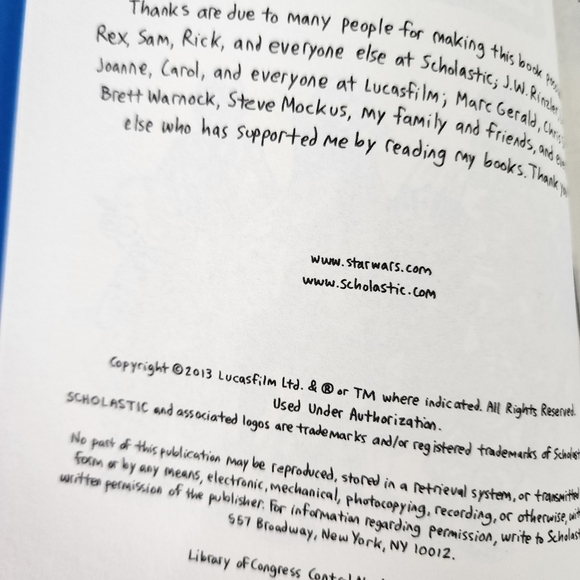 Thanks are due to many people for making this book
Rex, Sam, Rick, and everyone else at Scholastic; J.W. Rinzler
Joanne, Carol, and everyone at Lucasfilm; Marc Gerald,
Brett Warnock, Steve Mockus, my family and friends, and
else who has supported me by reading my books. Thank
www.starwars.com
www.scholastic.com
Copyright ©2013 Lucasfilm Ltd. & ® or TM where indicated. All Rights Reserved.
Used Under Authorization.
SCHOLASTIC and associated logos are trademarks and/or registered trademarks of
No part of this publication may be reproduced, stored in a retrieval system, or transmitted
form or by any means, electronic, mechanical, photocopying, recording, or otherwise,
written permission of the publisher. For information regarding permission, write to
557 Broadway, New York, NY 10012.
Library of Congress